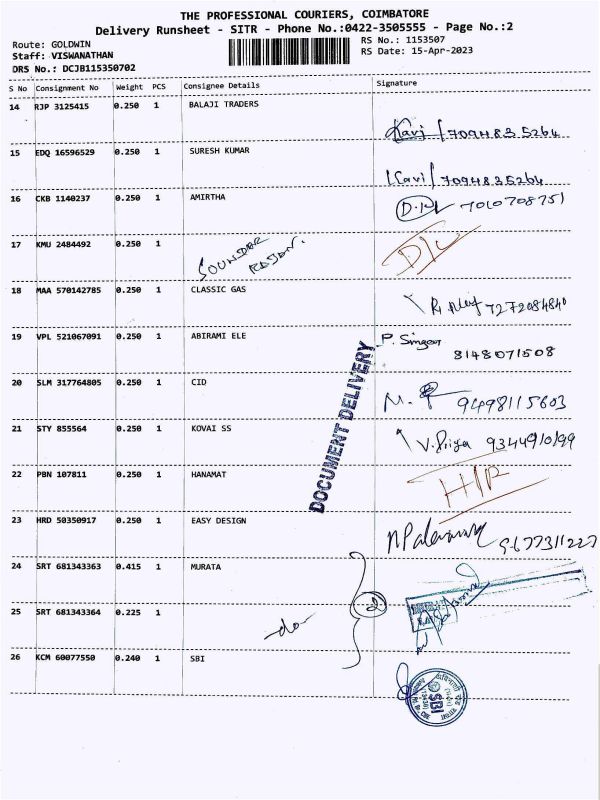 THE PROFESSIONAL COURIERS, COIMBATORE
Delivery Runsheet - SITR - Phone No.:0422-3505555 - Page No.:2
Route: GOLDWIN
Staff: VISWANATHAN
DRS No.: DCJB115350702
RS No.: 1153507
RS Date: 15-Apr-2023
S No Consignment No Weight PCS Consignee Details Signature
14 RJP 3125415 0.250 1 BALAJI TRADERS
Kavi 7094835264
15 EDQ 16596529 0.250 1 SURESH KUMAR
Kavi 7094835264
16 CKB 1140237 0.250 1 AMIRTHA
7010708751
17 KMU 2484492 0.250 1
SOUNDAR RAJAN. D/L
18 MAA 570142785 0.250 1 CLASSIC GAS
7272084840
19 VPL 521067091 0.250 1 ABIRAMI ELE
8148071508
DOCUMENT DELIVERY
20 SLM 317764805 0.250 1 CID
9498115603
21 STY 855564 0.250 1 KOVAI SS
V. Priya
22 PBN 107811 0.250 1 HANAMAT
23 HRD 50350917 0.250 1 EASY DESIGN
9677311227
24 SRT 681343363 0.415 1 MURATA
25 SRT 681343364 0.225 1
-do-
26 KCM 60077550 0.240 1 SBI
SBI